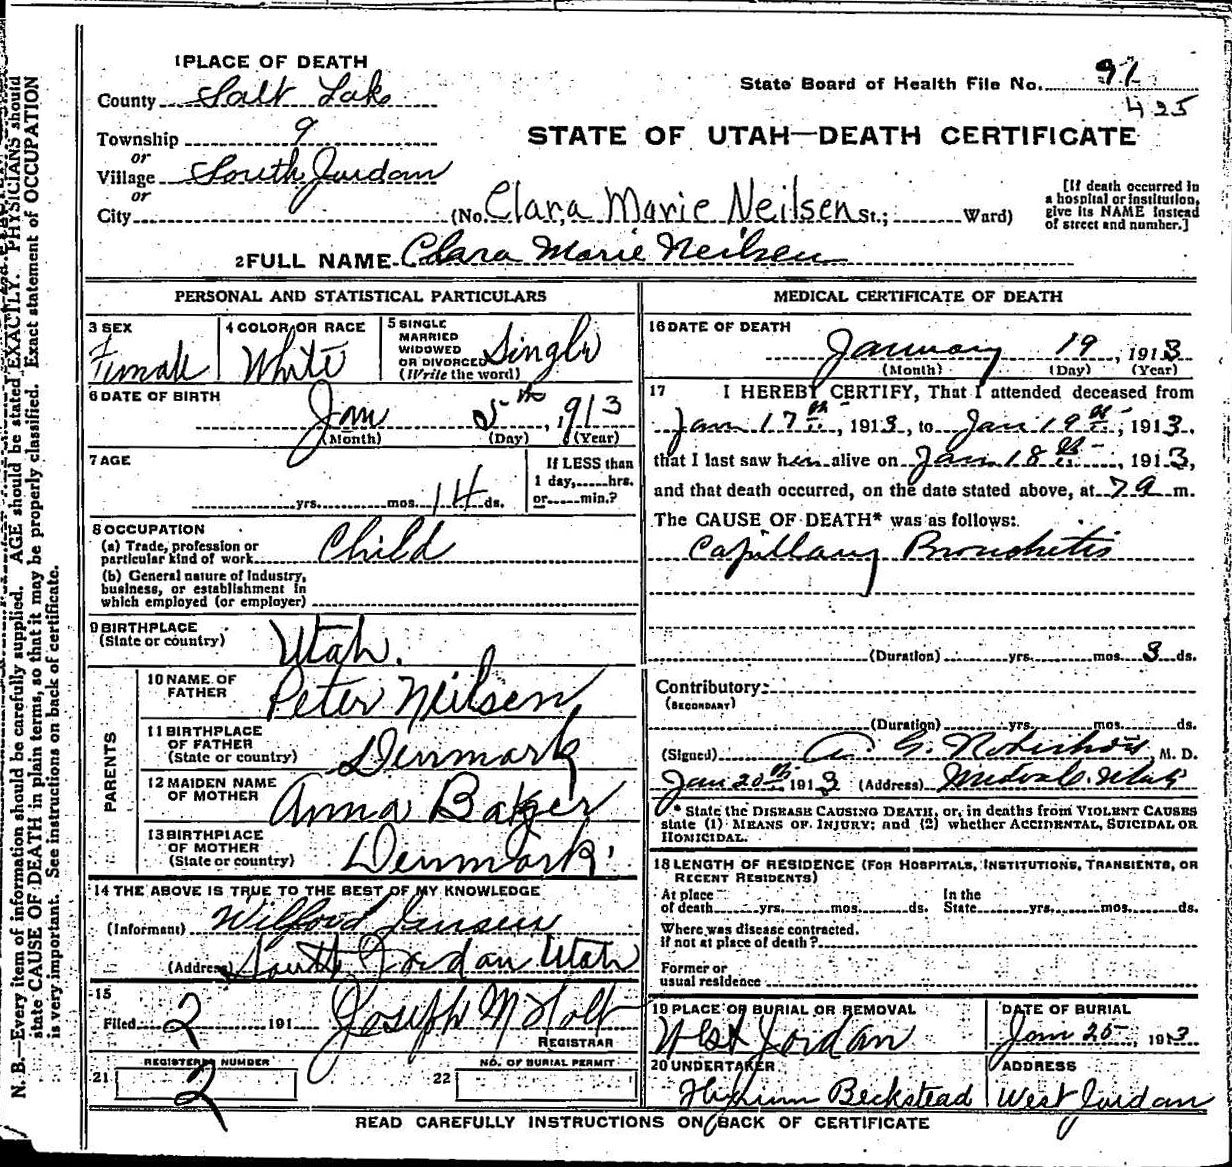 1 PLACE OF DEATH
County Salt Lake
State Board of Health File No. 91
425
Township 9
or
Village South Jordan
or
City (No. Clara Marie Neilsen St.; Ward)
STATE OF UTAH—DEATH CERTIFICATE
[If death occurred in
a hospital or institution,
give its NAME instead
of street and number.]
2 FULL NAME Clara Marie Neilsen
PERSONAL AND STATISTICAL PARTICULARS
3 SEX
Female
4 COLOR OR RACE
White
5 SINGLE
MARRIED
WIDOWED
OR DIVORCED
(Write the word)
Single
6 DATE OF BIRTH
Jan 5th, 1913
(Month) (Day) (Year)
7 AGE
yrs. mos. 14 ds.
If LESS than
1 day, hrs.
or min.?
8 OCCUPATION
(a) Trade, profession or
particular kind of work Child
(b) General nature of industry,
business, or establishment in
which employed (or employer)
9 BIRTHPLACE
(State or country) Utah.
PARENTS
10 NAME OF
FATHER Peter Neilsen
11 BIRTHPLACE
OF FATHER
(State or country) Denmark
12 MAIDEN NAME
OF MOTHER Anna Bakger
13 BIRTHPLACE
OF MOTHER
(State or country) Denmark
14 THE ABOVE IS TRUE TO THE BEST OF MY KNOWLEDGE
(Informant) Wilford Jensen
(Address) South Jordan Utah
15
Filed 2 191 Joseph M Holt
REGISTRAR
REGISTERED NUMBER
21 2
NO. OF BURIAL PERMIT
22
MEDICAL CERTIFICATE OF DEATH
16 DATE OF DEATH
January 19, 1913
(Month) (Day) (Year)
17 I HEREBY CERTIFY, That I attended deceased from
Jan 17th, 1913, to Jan 19th, 1913,
that I last saw her alive on Jan 18th, 1913,
and that death occurred, on the date stated above, at 7 a m.
The CAUSE OF DEATH* was as follows:
Capillary Bronchitis
(Duration) yrs. mos. 3 ds.
Contributory:
(SECONDARY)
(Duration) yrs. mos. ds.
(Signed) A. G. M. D.
Jan 20th 1913 (Address) Midvale, Utah
* State the DISEASE CAUSING DEATH, or, in deaths from VIOLENT CAUSES
state (1) MEANS OF INJURY; and (2) whether ACCIDENTAL, SUICIDAL OR
HOMICIDAL.
18 LENGTH OF RESIDENCE (FOR HOSPITALS, INSTITUTIONS, TRANSIENTS, OR
RECENT RESIDENTS)
At place
of death yrs. mos. ds.
In the
State yrs. mos. ds.
Where was disease contracted.
if not at place of death?
Former or
usual residence
19 PLACE OR BURIAL OR REMOVAL
West Jordan
DATE OF BURIAL
Jan 20, 1913
20 UNDERTAKER
Hyrum Beckstead
ADDRESS
West Jordan
READ CAREFULLY INSTRUCTIONS ON BACK OF CERTIFICATE
N. B.—Every item of information should be carefully supplied. AGE should be stated EXACTLY. PHYSICIANS should
state CAUSE OF DEATH in plain terms, so that it may be properly classified. Exact statement of OCCUPATION
is very important. See instructions on back of certificate.